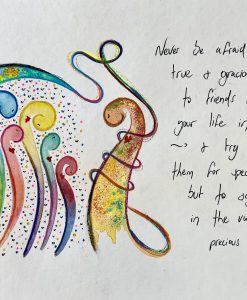 Never be afraid
true & gracious
to friends
your life in
~> & try
them for spec
but to s
in the va
precious